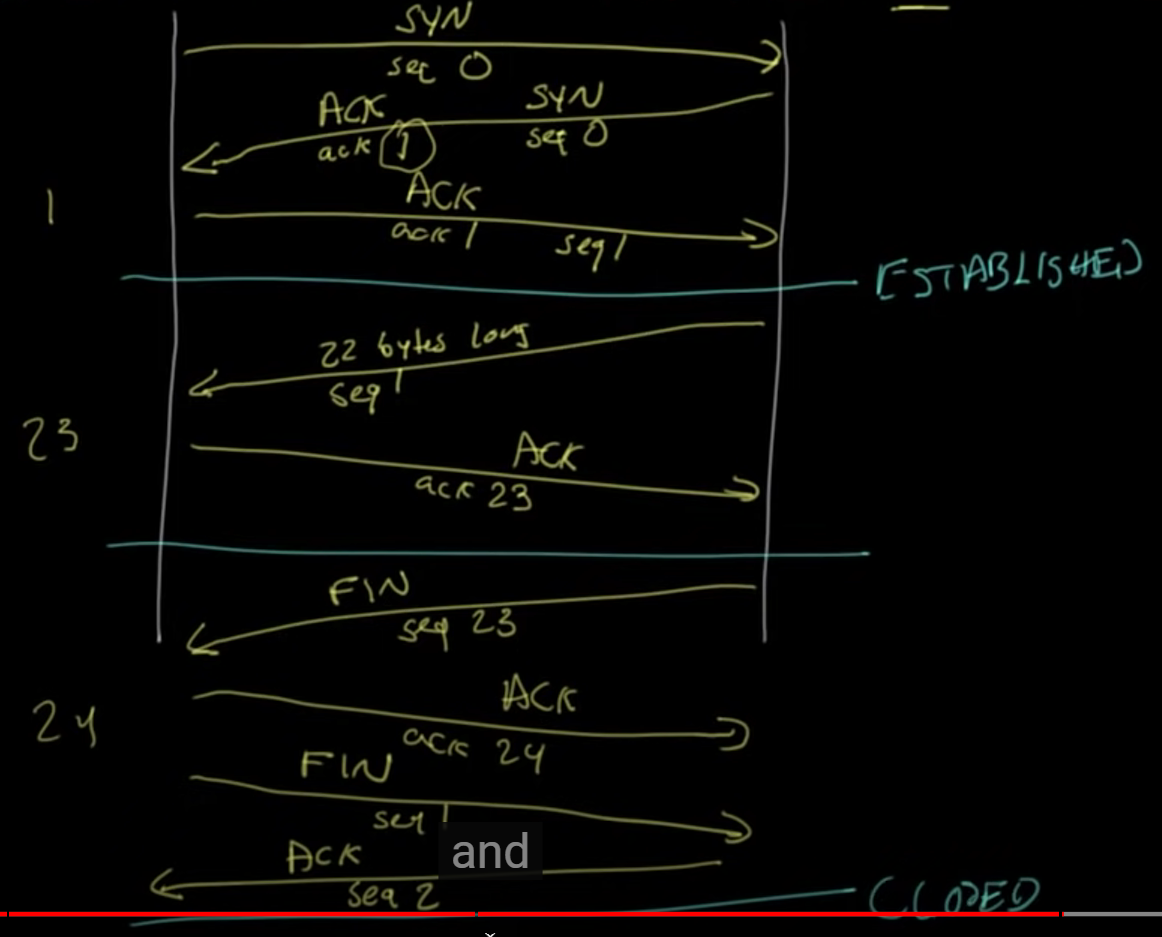 SYN
seq 0
ACK SYN
ack 1 seq 0
1
ACK
ack 1 seq 1
ESTABLISHED
22 bytes long
seq 1
23
ACK
ack 23
FIN
seq 23
24
ACK
ack 24
FIN
seq 1
and
ACK
seq 2
CLOSED